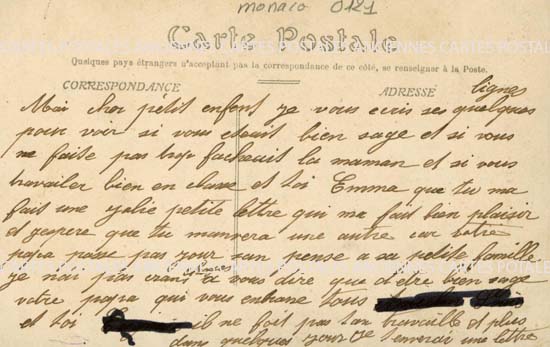 monaco 0121
Carte Postale
Quelques pays étrangers n'acceptant pas la correspondance de ce côté, se renseigner à la Poste.
CORRESPONDANCE
ADRESSE
lignes
Mai cher petit enfent je vous ecris ses quelques
pour voir si vous etait bien sage et si vous
ne faite pas trop fachait la maman et si vous
travailer bien en classe et toi Emma que tu ma
fait une jolie petite lettre qui ma fait bien plaisir
et jespere que tu manvera une autre car votre
papa passe pas jour san pense a sa petite famille
je nai pas a vous dire que detre bien sage
votre papa qui vous enbrase tous
et toi il ne fait pas tan travaille et plus
dans quelques jour je tenverai une lettre